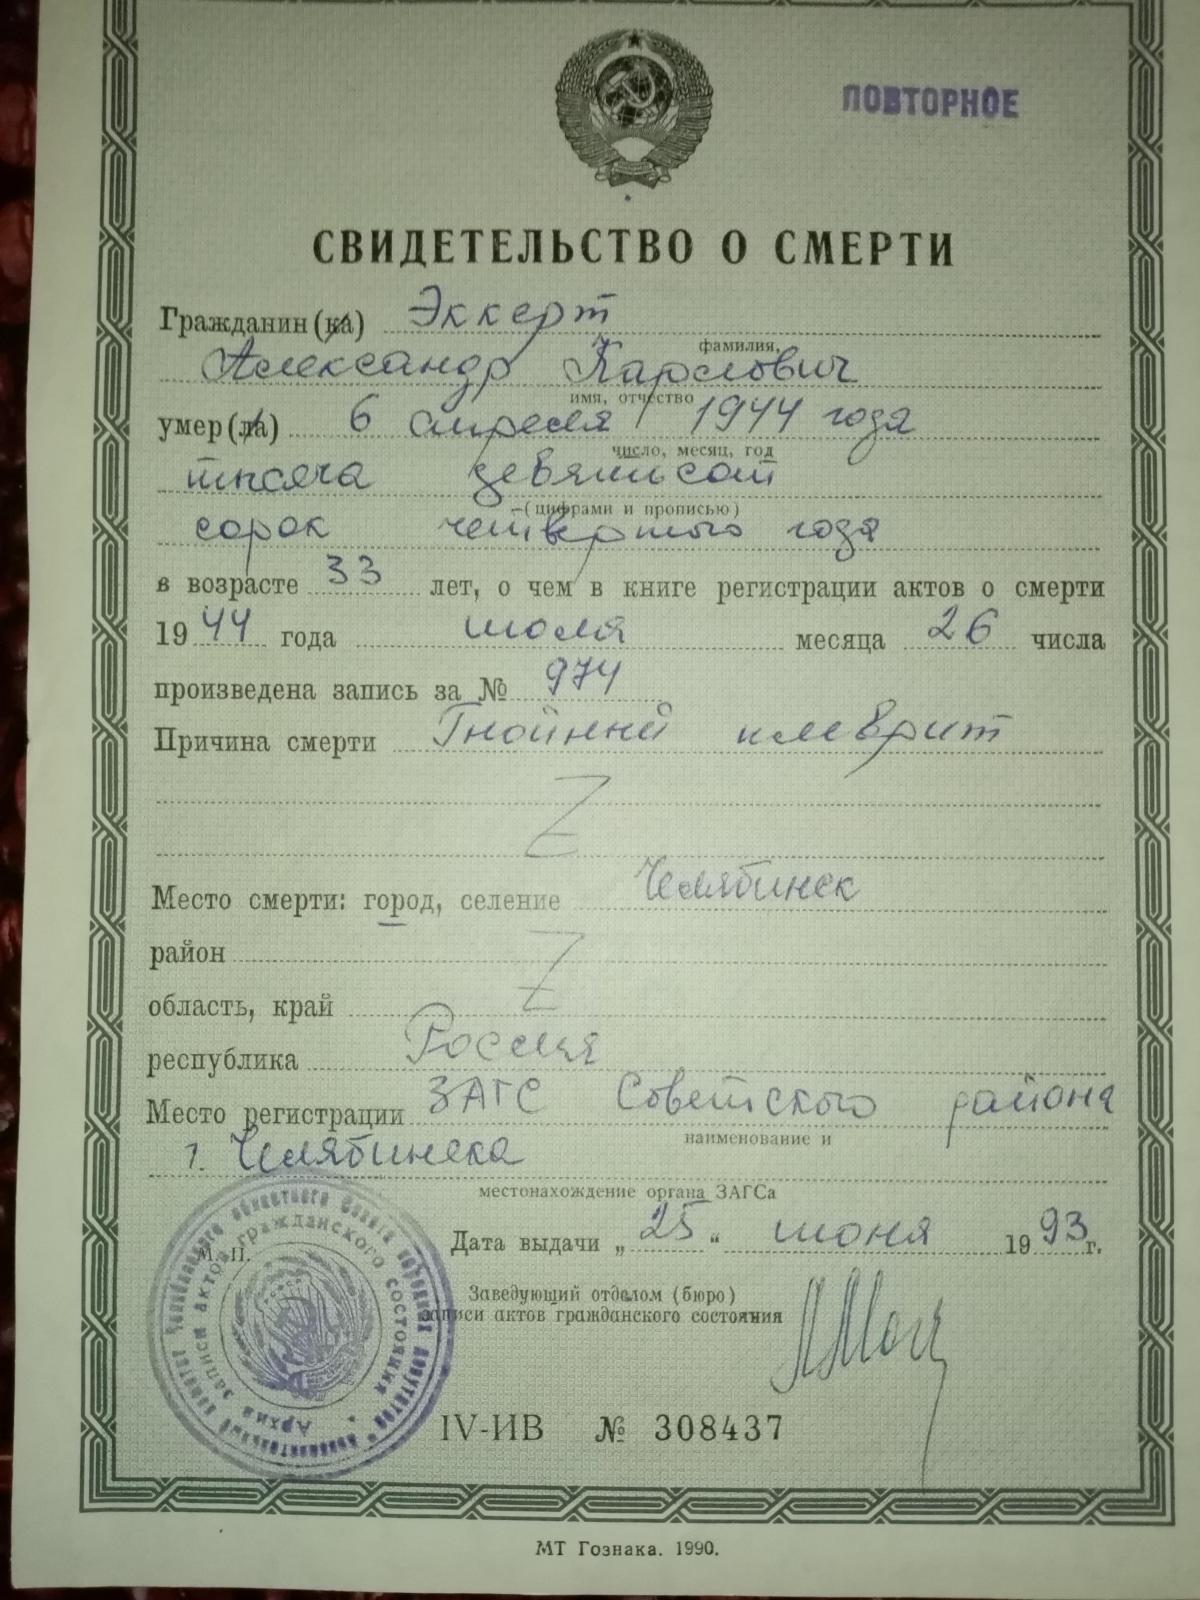 ПОВТОРНОЕ
СВИДЕТЕЛЬСТВО О СМЕРТИ
Гражданин(ка) Эккерт
фамилия,
Александр Карлович
имя, отчество
умер(ла) 6 апреля 1944 года
число, месяц, год
тысяча девятьсот
(цифрами и прописью)
сорок четвертого года
в возрасте 33 лет, о чем в книге регистрации актов о смерти
1944 года июля месяца 26 числа
произведена запись за № 974
Причина смерти Гнойный плеврит
Z
Место смерти: город, селение Челябинск
район
Z
область, край
республика Россия
Место регистрации ЗАГС Советского района
наименование и
г. Челябинска
местонахождение органа ЗАГСа
М. П.
Дата выдачи „25“ июня 1993г.
Заведующий отделом (бюро)
записи актов гражданского состояния
Архив записи актов гражданского состояния
IV-ИВ № 308437
МТ Гознака. 1990.